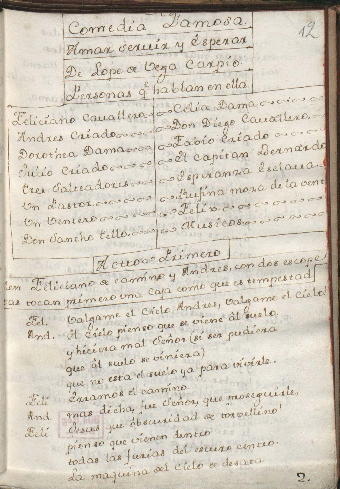 12
Comedia Famosa.
Amar Servir y Esperar
De Lope de Vega Carpio
Personas q hablan en ella
Feliciano Cavallero. Celia Dama
Andres Criado Don Diego Cavallero
Dorothea Dama Fabio Criado
Julio Criado El Capitan Bernardo
tres Salteadores Esperanza Esclava
Un Pastor Rufina mora de la vent
Un Ventero Felix
Don Sancho Tello Musicos
Actto Primero
en Feliciano de camino y Andres, con dos escope
tas tocan primero una Caja como que es tempestad
Fel. Valgame el Cielo Andres, Valgame el Cielo!
And. El Cielo pienso que se viene al suelo,
y hiciera mal Señor (si ser pudiera
que al suelo se viniera)
que no està el suelo ya para vivirle.
Feli Erramos el camino
And mas dicha, fue Señor, que no seguirle,
Feli Jesus que obscuridad de torvellino!
pienso que vienen dentro
todas las furias del escuro centro.
La maquina del Cielo se desata
2.